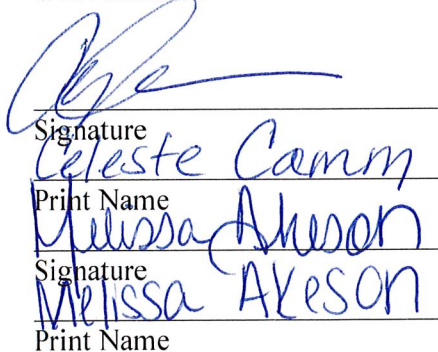 Signature
Celeste Camm
Print Name
Melissa Akeson
Signature
Melissa Akeson
Print Name